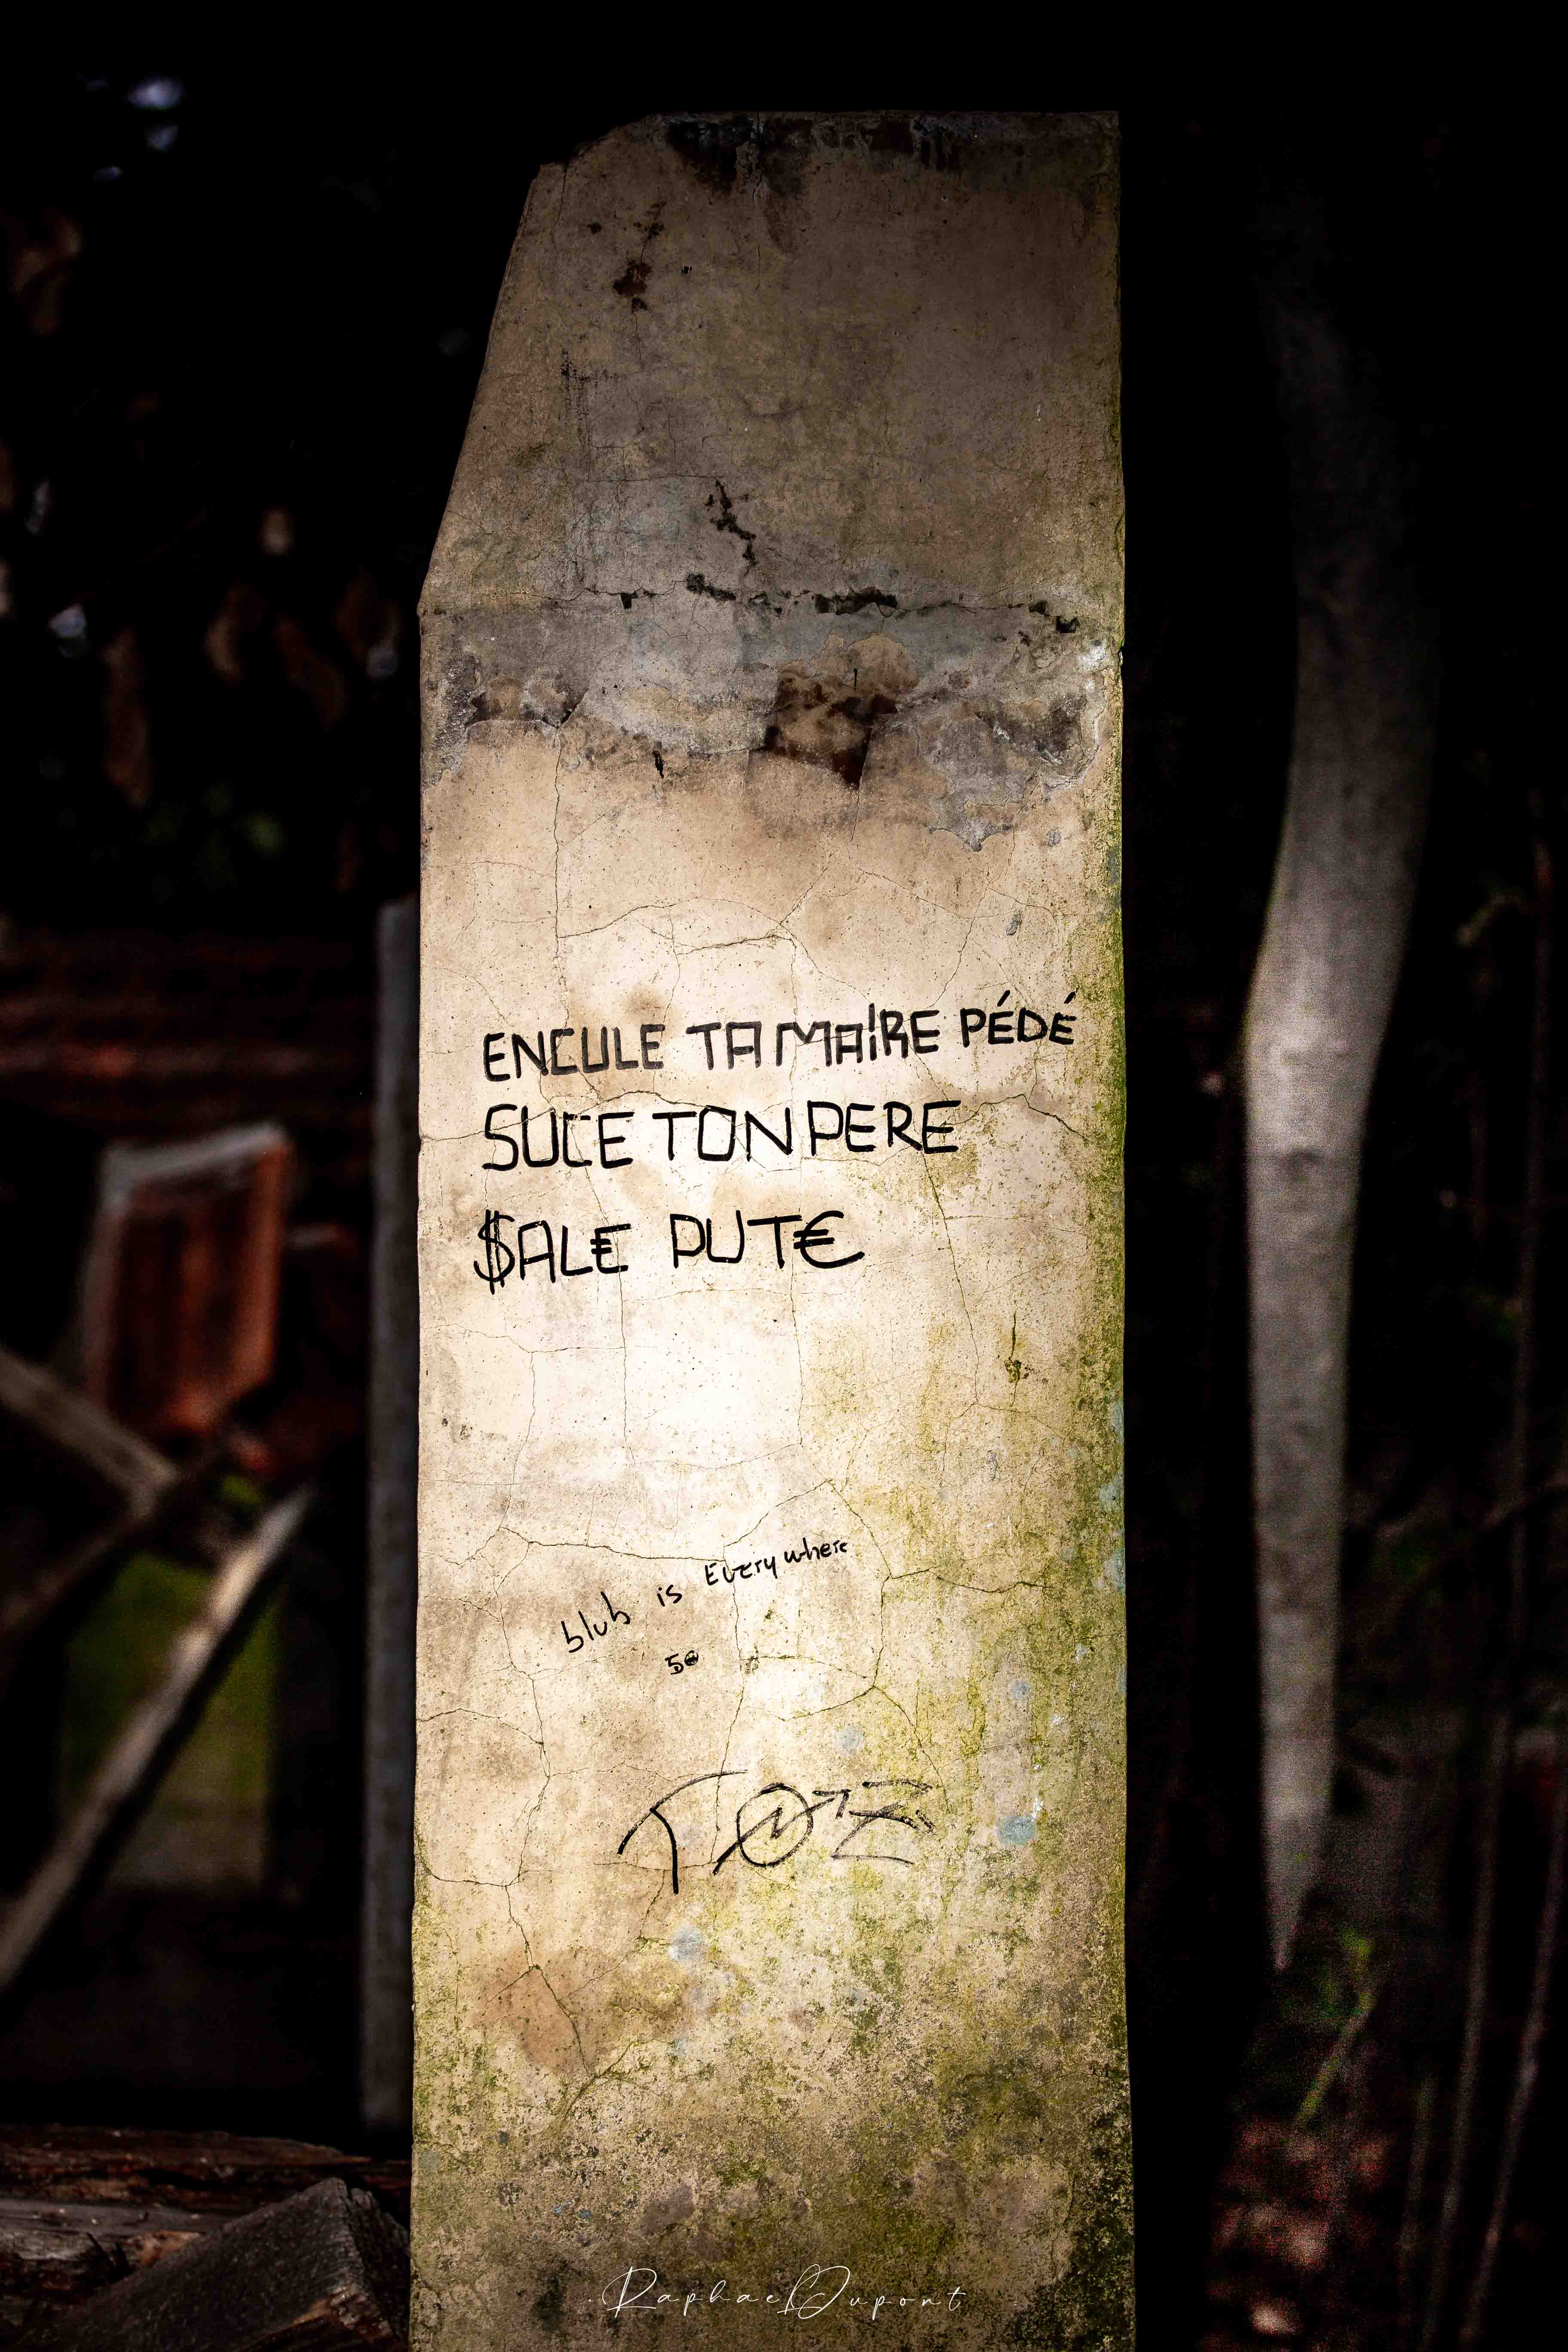 ENCULE TA MAIRE PÉDÉ
SUCE TON PERE
$ALE PUT€
blub is Everywhere
Raphael Dupont